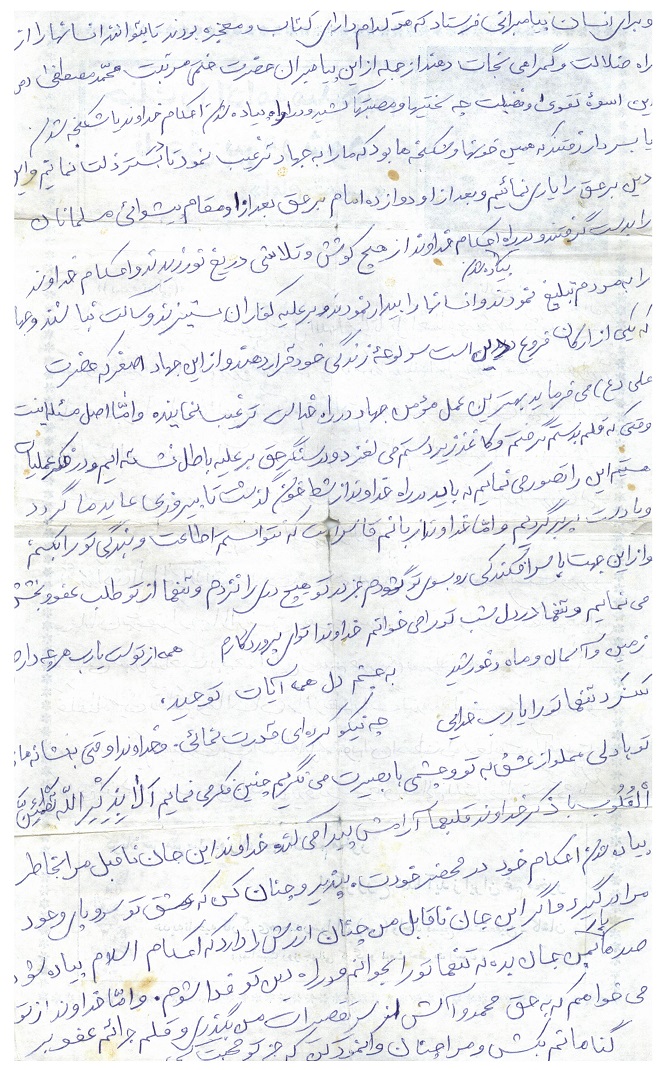 و برای انسان پیامبرانی فرستاد که هر کدام دارای کتاب و معجزه بودند تا بتوانند انسانها را از
راه ضلالت و گمراهی نجات دهند از جمله از این پیامبران حضرت ختمی مرتبت محمد مصطفی
این اسوهٔ تقوی و فضیلت چه سختیها و مصیبتها کشید و در راه پیاده شدن احکام خداوند با شکنجه
یا بسر دار رفتند که همین خونها و شکنجه ها بود که ما را به جهاد ترغیب نمود تا بستر ذلت نمائیم و این
دین بر حق را یاری نمائیم و بعد از او دوازده امام بر حق بعد از او مقام پیشوائی مسلمانان
را بدست گرفتند و در راه احکام خداوند از هیچ کوشش و تلاشی دریغ نورزیدند و احکام خداوند
پیاده شدن
را به مردم تبلیغ نمودند و انسانها را بیدار نمودند و بر علیه کفاران بستیزند و ساکت نباشند و جهاد
که یکی از ارکان فروع دین است سر لوحهٔ زندگی خود قرار دهند و از این جهاد اصغر که حضرت
علی (ع) می فرماید بهترین عمل مؤمن جهاد در راه خداست ترغیب نماینده و امّا اصل مسئله اینست
وقتی که قلم بدستم گرفتم و کاغذ زیر دستم می لغزد و در سنگر حق بر علیه باطل نشسته ایم و در فکر عملیات
هستیم این را تصور می نمایم که باید در راه خداوند از شط خون گذشت تا پیروزی عاید ما گردد
و یا دست پر برگردیم و امّا خداوندا زبانم قاصر است که نتوانستم اطاعت و بندگی تو را بکنم
و از این جهت با سرافکندگی رو بسوی تو گشودم جز در تو هیچ دری را نزدم و تنها از تو طلب عفو و بخشش
می نمایم و تنها در دل شب تو را می خوانم خداوندا توئی پروردگارم همه از توست یارب هر چه دارم
زمین و آسمان و ماه و خورشید به چشم دل همه آیات توحید،
تنها تو را یارب خدایی چه نیکو کرده ای قدرت نمائی. خداوندا وقتی به نشانه های
تو با دلی مملو از عشق به تو و چشمی با بصیرت می نگریم چنین فکر می نمایم اَلا بِذِکْرِ اللّهِ تَطْمَئِنُّ
اَلْقُلُوب با ذکر خداوند قلبها آرامش پیدا می کند خداوندا این جان ناقابل مرا بخاطر
پیاده شدن احکام خود در محضر خودت بپذیر و چنان کن که عشق تو سر و پای وجود
مرا در برگیرد و اگر این جان ناقابل من چنان ارزش را دارد که احکام اسلام پیاده شود
صدها بار بمن جان بده که تنها تو را بخوانم و در راه دین تو فدا شوم. و امّا خداوندا از تو
می خواهم که به حق محمد و آلش از سر تقصیرات من بگذری و قلم جرائم عفو بر
گناهانم بکش و مرا چنان وانمود کن که جز تو